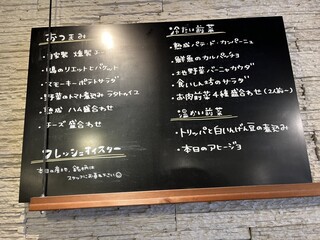 おつまみ
・自家製 燻製ナッツ
・鴨のリエットとバゲット
・スモーキーポテトサラダ
・野菜のトマト煮込み ラタトゥイユ
・熟成ハム盛合わせ
・チーズ 盛合わせ
フレッシュオイスター
本日の産地、銘柄は
スタッフにお尋ね下さい☺
冷たい前菜
・熟成パテ・ド・カンパーニュ
・鮮魚のカルパッチョ
・地野菜バーニャカウダ
・食いしん坊のサラダ
・お肉前菜4種盛合わせ(2人前~)
温かい前菜
・トリッパと白いんげん豆の煮込み
・本日のアヒージョ